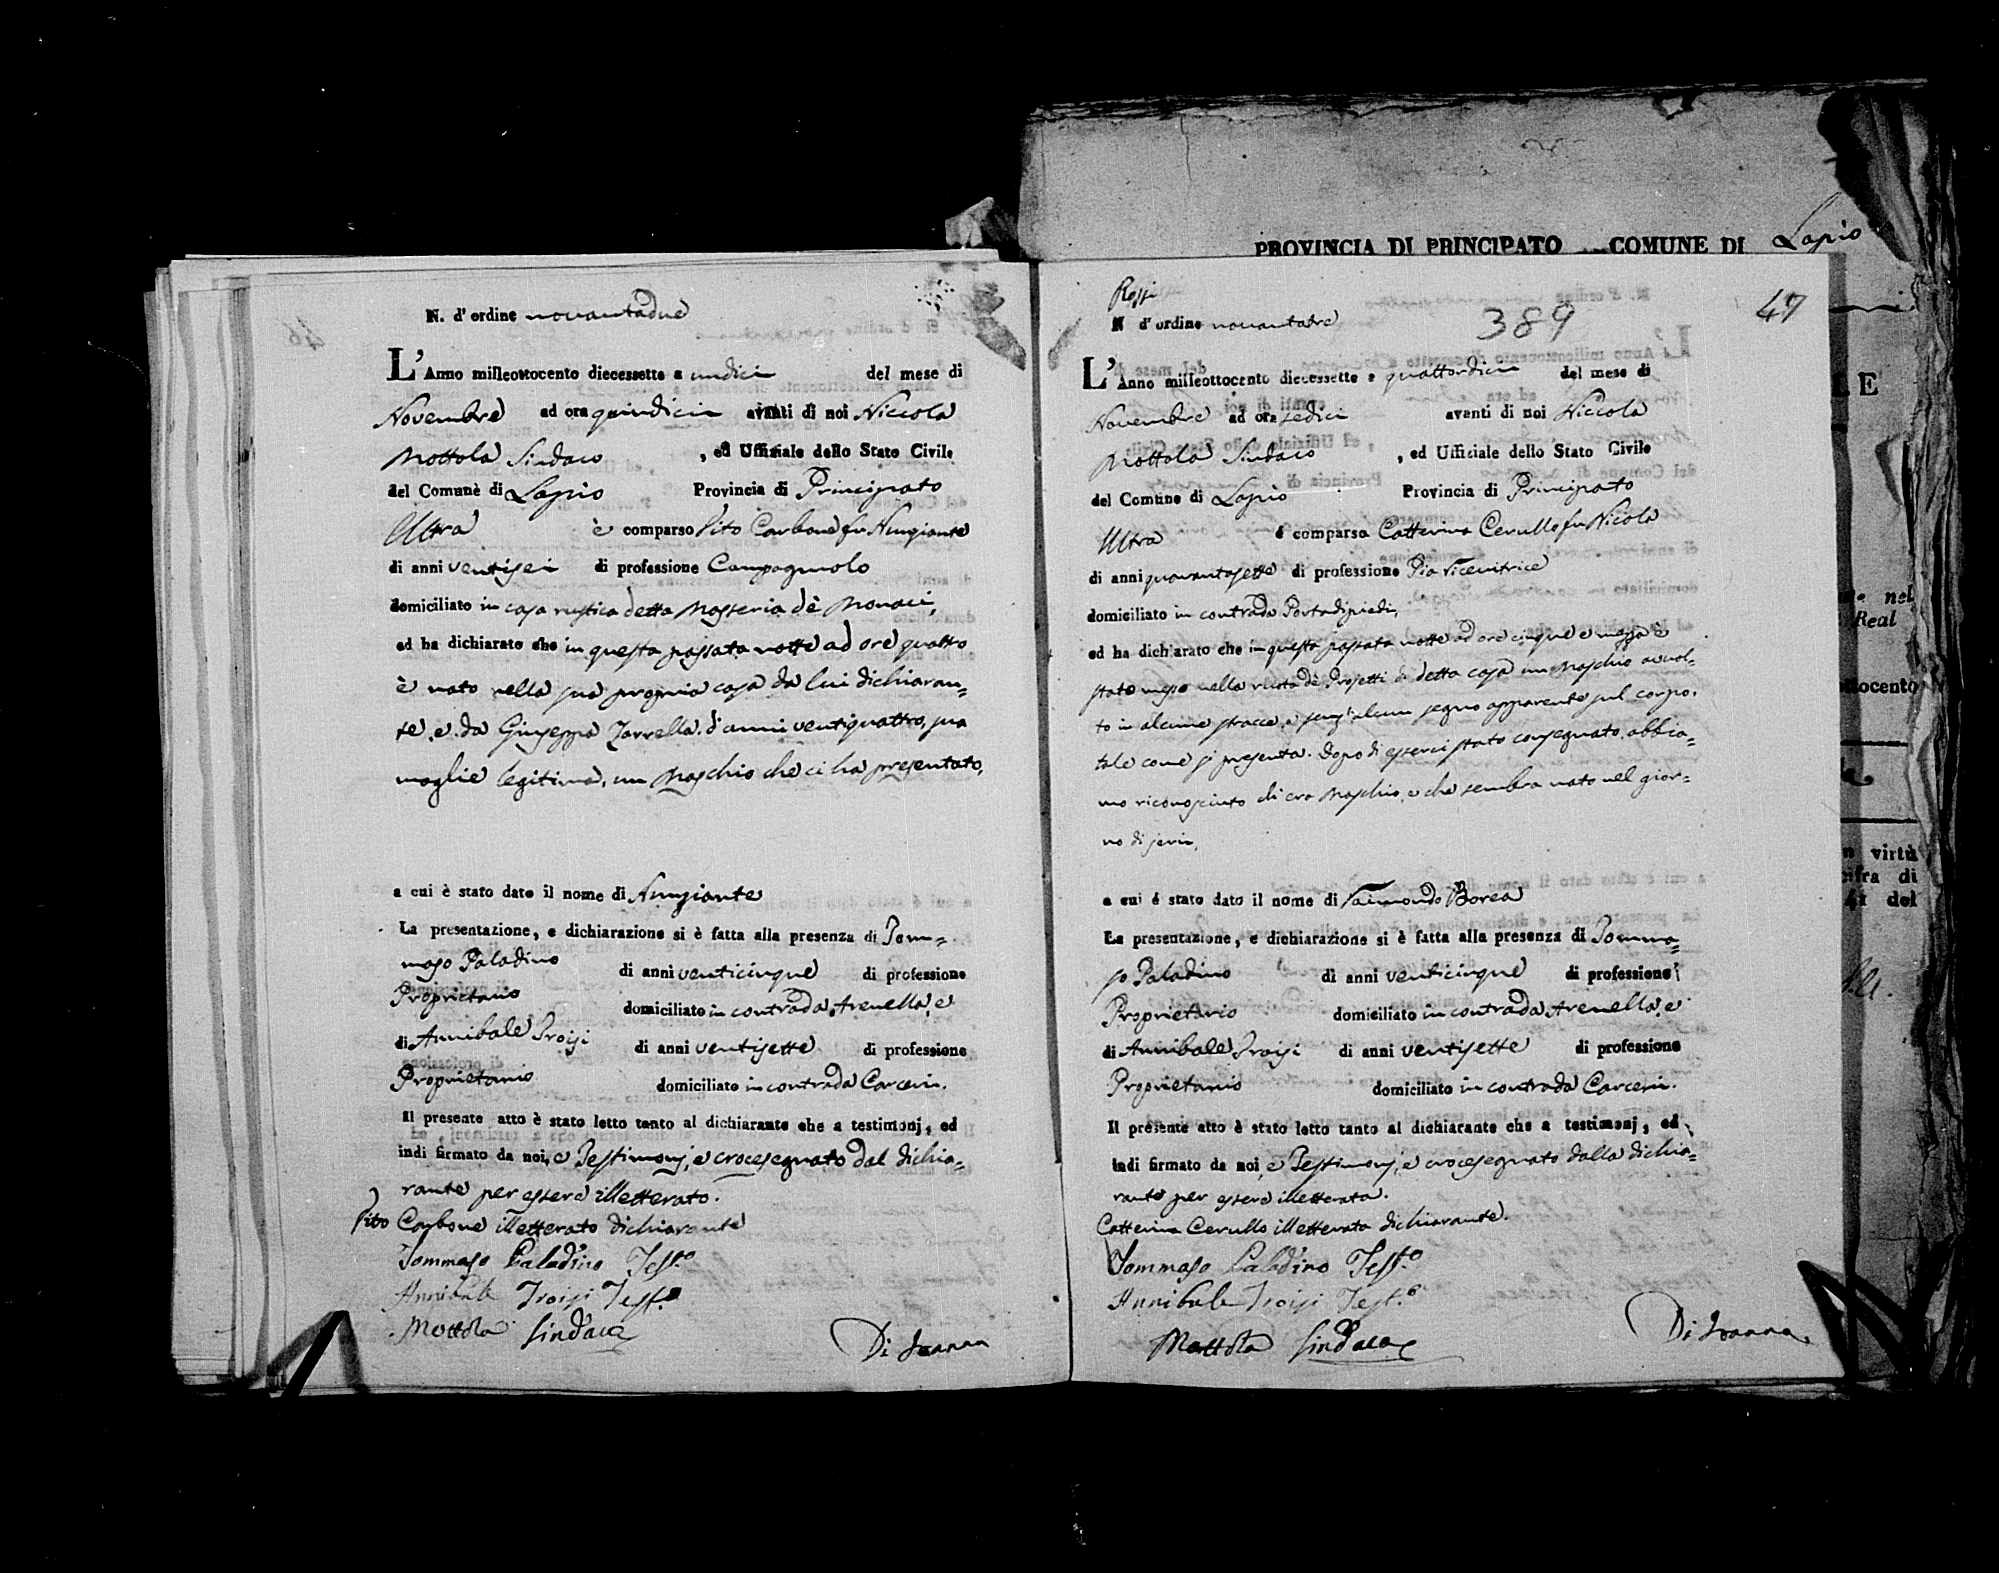 PROVINCIA DI PRINCIPATO COMUNE DI Lapio
N. d'ordine novantadue
L'Anno milleottocento diecessette a undici del mese di
Novembre ad ora quindici avanti di noi Niccola
Mottola Sindaco , ed Uffiziale dello Stato Civile
del Comune di Lapio Provincia di Principato
Ultra è comparso Vito Carbone fu Angiante
di anni ventisei di professione Campagnolo
domiciliato in casa rustica detta Masseria dè Monaci,
ed ha dichiarato che in questa passata notte ad ore quattro
è nato nella sua propria casa da lui dichiaran=
te, e da Giuseppa Zarrella d'anni ventiquattro, sua
moglie legitima, un Maschio che ci ha presentato,
a cui è stato dato il nome di Angiante
La presentazione, e dichiarazione si è fatta alla presenza di Tom=
maso Paladino di anni venticinque di professione
Proprietario domiciliato in contrada Arenella, e
di Annibale Troisi di anni ventisette di professione
Proprietario domiciliato in contrada Carceri.
Il presente atto è stato letto tanto al dichiarante che a testimonj, ed
indi firmato da noi, e Testimonj, e crocesegnato dal dichia=
rante per essere illetterato.
Vito Carbone illetterato dichiarante
Tommaso Paladino Test.o
Annibale Troisi Test.o
Mottola Sindaco
Di Ioanna
Rossi
47
N d'ordine novantatre
389
L'Anno milleottocento diecessette a quattordici del mese di
Novembre ad ora sedici avanti di noi Niccola
Mottola Sindaco , ed Ufficiale dello Stato Civile
del Comune di Lapio Provincia di Principato
Ultra é comparsa Catterina Cerullo fu Nicola
di anni quarantasette di professione Pia Ricevitrice
domiciliato in contrada Portadipiedi,
ed ha dichiarato che in questa passata notte ad ore cinque e mezza è
stato messo nella ruota dè Projetti di detta casa un Maschio avvol=
to in alcune stracce, e senz'alcun segno apparente sul corpo,
tale come si presenta. Dopo di esserci stato consegnato, abbia=
mo riconosciuto ch'era Maschio, e che sembra nato nel gior=
no di jeri,
a cui é stato dato il nome di Raimondo Borea
La presentazione, e dichiarazione si è fatta alla presenza di Tomma=
so Paladino di anni venticinque di professione
Proprietario domiciliato in contrada Arenella, e
di Annibale Troisi di anni ventisette di professione
Proprietario domiciliato in contrada Carceri.
Il presente atto è stato letto tanto al dichiarante che a testimonj, ed
indi firmato da noi, e Testimonj, e crocesegnato dalla dichia=
rante per essere illetterata.
Catterina Cerullo illetterata dichiarante.
Tommaso Paladino Test.o
Annibale Troisi Test.o
Mottola Sindaco
Di Ioanna
E
nel
Real
ttocento
n virtù
cifra di
del